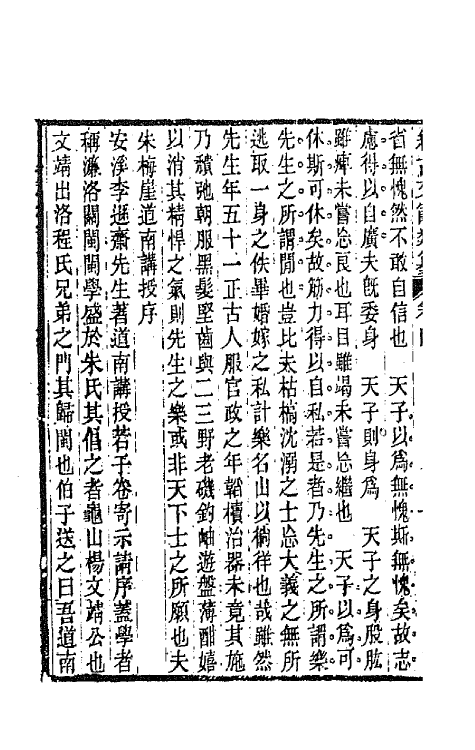 省無愧然不敢自信也　天子以爲無愧斯無愧矣故志
應得以自廣夫旣委身　天子則身爲　天子之身股肱
雖痺未嘗忘良也耳目雖竭未嘗忘繼也　天子以爲可
休斯可休矣故筋力得以自私若是者乃先生之所謂樂
先生之所謂閒也豈比夫枯槁沈溺之士忘大義之無所
逃取一身之佚畢婚嫁之私計樂名山以徜徉也哉雖然
先生年五十一正古人服官政之年韜櫝治器未竟其施
乃頹弛朝服黑髮堅齒與二三野老磯釣岫遊盤薄酣嬉
以消其精悍之氣則先生之樂或非天下士之所願也夫
朱梅崖道南講授序
安溪李遜齋先生著道南講授若干卷寄示請序蓋學者
稱濂洛關閩閩學盛於朱氏其倡之者龜山楊文靖公也
文靖出洛程氏兄弟之門其歸閩也伯子送之曰吾道南